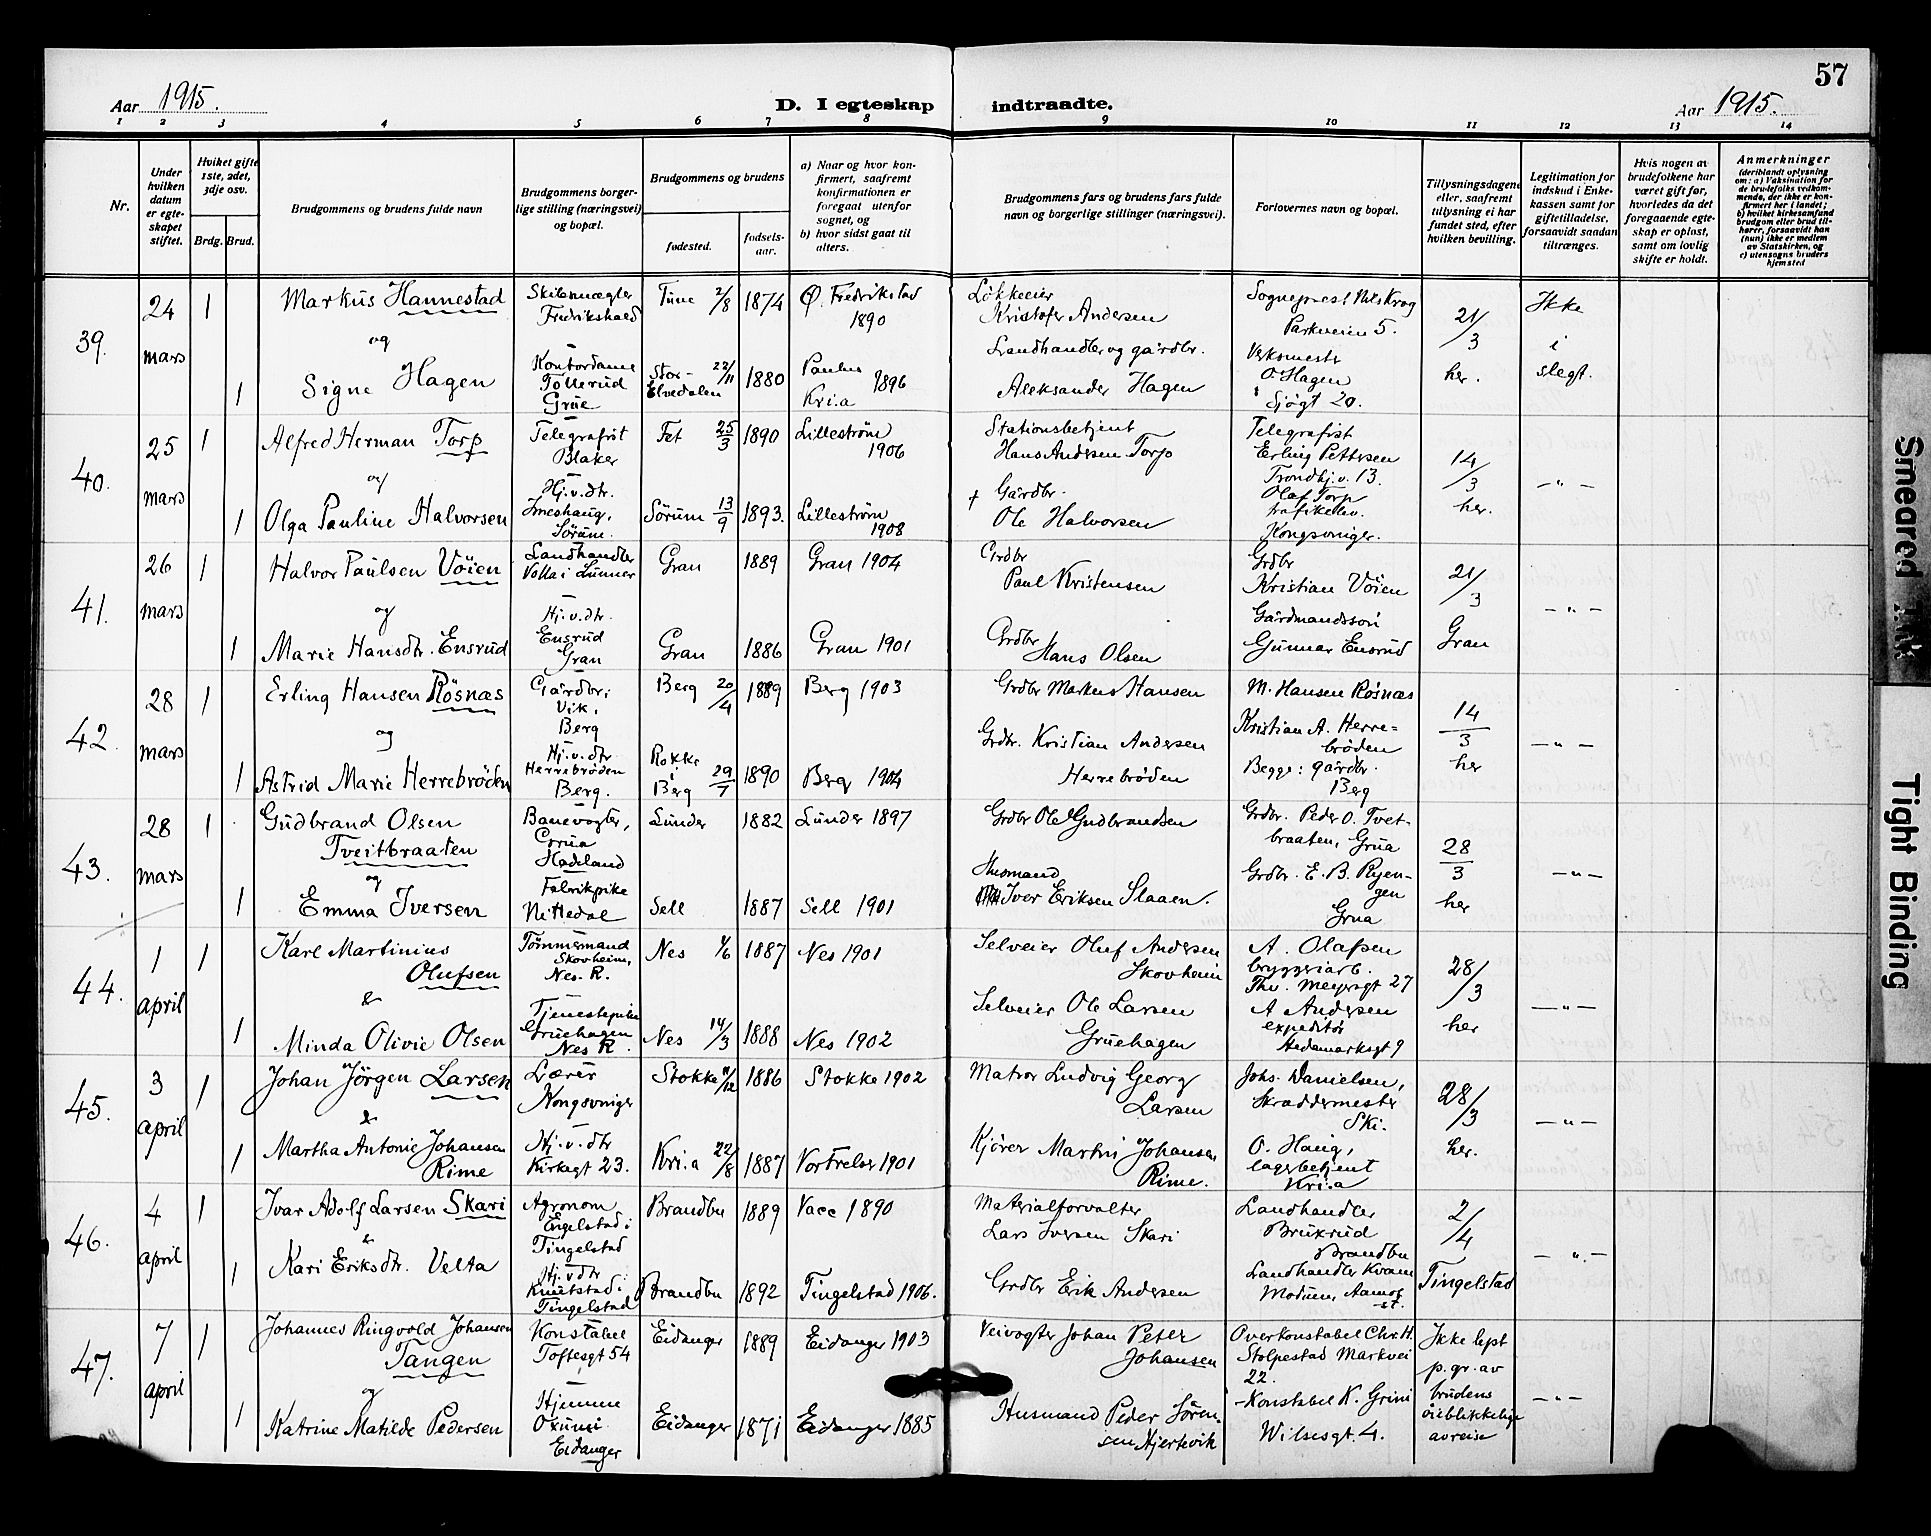 57
Aar 1915.
D. I egteskap indtraadte.
Aar 1915.
1 2 3 4 5 6 7 8 9 10 11 12 13 14
Nr.
Under hvilken datum er egteskapet stiftet.
Hvilket gifte 1ste, 2det, 3dje osv.
Brdg. Brud.
Brudgommens og brudens fulde navn
Brudgommens borgerlige stilling (næringsvei) og bopæl.
Brudgommens og brudens
fødested.
fødselsaar.
a) Naar og hvor konfirmert, saafremt konfirmationen er foregaat utenfor sognet, og
b) hvor sidst gaat til alters.
Brudgommens fars og brudens fars fulde navn og borgerlige stillinger (næringsvei).
Forlovernes navn og bopæl.
Tillysningsdagene eller, saafremt tillysning ei har fundet sted, efter hvilken bevilling.
Legitimation for indskud i Enkekassen samt for giftetilladelse, forsaavidt saadan tiltrænges.
Hvis nogen av brudefolkene har været gift før, hvorledes da det foregaaende egteskap er opløst, samt om lovlig skifte er holdt.
Anmerkninger (deriblandt oplysning om: a) Vaksination for de brudefolks vedkommende, der ikke er konfirmert her i landet; b) hvilket kirkesamfund brudgom eller brud tilhører, forsaavidt han (hun) ikke er medlem av Statskirken, og c) utensogns bruders hjemsted
39. 24 mars 1 Markus Hannestad
Skibsmægler Fredrikshald
Tune 2/8 1874
Ø. Fredrikstad 1890
Løkkeeier Kristofer Andersen
Sogneprest Nils Krog Parkveien 5.
21/3 her.
Ikke i slegt.
og
1 Signe Hagen
Kontordame Tollerud Grue
Stor-Elvedalen 22/11 1880
Paulus Kri.a 1896
Landhandler og gårdbr. Aleksander Hagen
Verksmester O. Hagen Sjøgt 20.
40. 25 mars 1 Alfred Herman Torp
Telegrafist Blaker
Fet 25/3 1890
Lillestrøm 1906
Stationsbetjent Hans Andersen Torp
Telegrafist Erling Pettersen Trondhj.v. 13.
14/3 her.
-"-
og
1 Olga Pauline Halvorsen
Hj.v.dtr. Imeshaug, Sørum.
Sørum 13/9 1893.
Lillestrøm 1908
+ Gårdbr. Ole Halvorsen
Olaf Torp trafikelev. Kongsvinger.
41. 26 mars 1 Halvor Paulsen Vöien
Landhandler Volla i Lunner
Gran 1889
Gran 1904
Grdbr Paul Kristensen
Grdbr Kristian Vöien
21/3 Gran
-"-
og
1 Marie Hansdtr. Ensrud
Hj.v.dtr. Ensrud Gran
Gran 1886
Gran 1901
Grdbr Hans Olsen
Gårdmandssøn Gunnar Ensrud
42. 28 mars 1 Erling Hansen Rösnæs
Gårdbr. Vik, Berg
Berg 20/4 1889
Berg 1903
Grdbr Markus Hansen
M. Hansen Rösnæs
14/3 her
-"-
og
1 Astrid Marie Herrebröden
Hj.v.dtr. Herrebröden Berg.
Rokke i Berg 29/7 1890
Berg 1904
Grdbr. Kristian Andersen Herrebröden
Kristian A. Herrebröden Begge: gårdbr. Berg
43. 28 mars 1 Gudbrand Olsen Tveitbraaten
Banevogter, Grua Hadeland
Lunder 1882
Lunder 1897
Grdbr Ole Gudbrandsen
Grdbr. Peder O. Tveitbraaten, Grua
28/3 her
-"-
og
1 Emma Iversen
Fabrikpike Nittedal
Sell 1887
Sell 1901
Husmand Iver Eriksen Slaaen.
Grdbr. E. B. Ryengen Grua
44. 1 april 1 Karl Martinius Olufsen
Tømmermand Skovheim, Nes. R.
Nes 4/6 1887
Nes 1901
Selveier Oluf Andersen Skovheim
A. Olafsen bryggeriarb. Thv. Meyersgt 27
28/3 her
-"-
&
1 Minda Olivie Olsen
Tjenestepike Gruehagen Nes R.
Nes 14/3 1888
Nes 1902
Selveier Ole Larsen Gruehagen
A Andersen expeditør Hedemarksgt 9
45. 3 april 1 Johan Jörgen Larsen
Lærer Kongsvinger
Stokke 11/12 1886
Stokke 1902
Matros Ludvig Georg Larsen
Johs. Danielsen, Skræddermester Ski.
28/3 her.
-"-
&
1 Martha Antonie Johansen Rime
Hj.v.dtr Kirkegt 23.
Kri.a 22/8 1887
Vor Frelser 1901
Kjører Martin Johansen Rime.
O. Haug, lagerbetjent Kri.a
46. 4 april 1 Ivar Adolf Larsen Skari
Agronom Engelstad i Tingelstad
Brandbu 1889
1890
Materialforvalter Lars Iversen Skari
Landhandler Bruksrud Brandbu
2/4 Tingelstad
-"-
&
1 Kari Eriksdtr. Velta
Hj.v.dtr Knutstad i Tingelstad
Brandbu 1892
Tingelstad 1906.
Grdbr Erik Andersen
Landhandler Kvam Moduen, Aamos st.
47. 7 april 1 Johannes Ringvold Johansen Tangen
Konstabel Toftesgt 54
Eidanger 1889
Eidanger 1903
Veivogter Johan Peter Johansen
Overkonstabel Chr. H. Stolpestad Markvei 22.
Ikke lyst p. gr. av brudens øieblikkelige avreise
-"-
og
1 Katrine Matilde Pedersen
Hjemme Eidanger
Eidanger 1871
Eidanger 1885
Husmand Peder Sörensen Hjertevik
Konstabel K. Grini Wilsesgt. 4.
Smeared Ink
Tight Binding